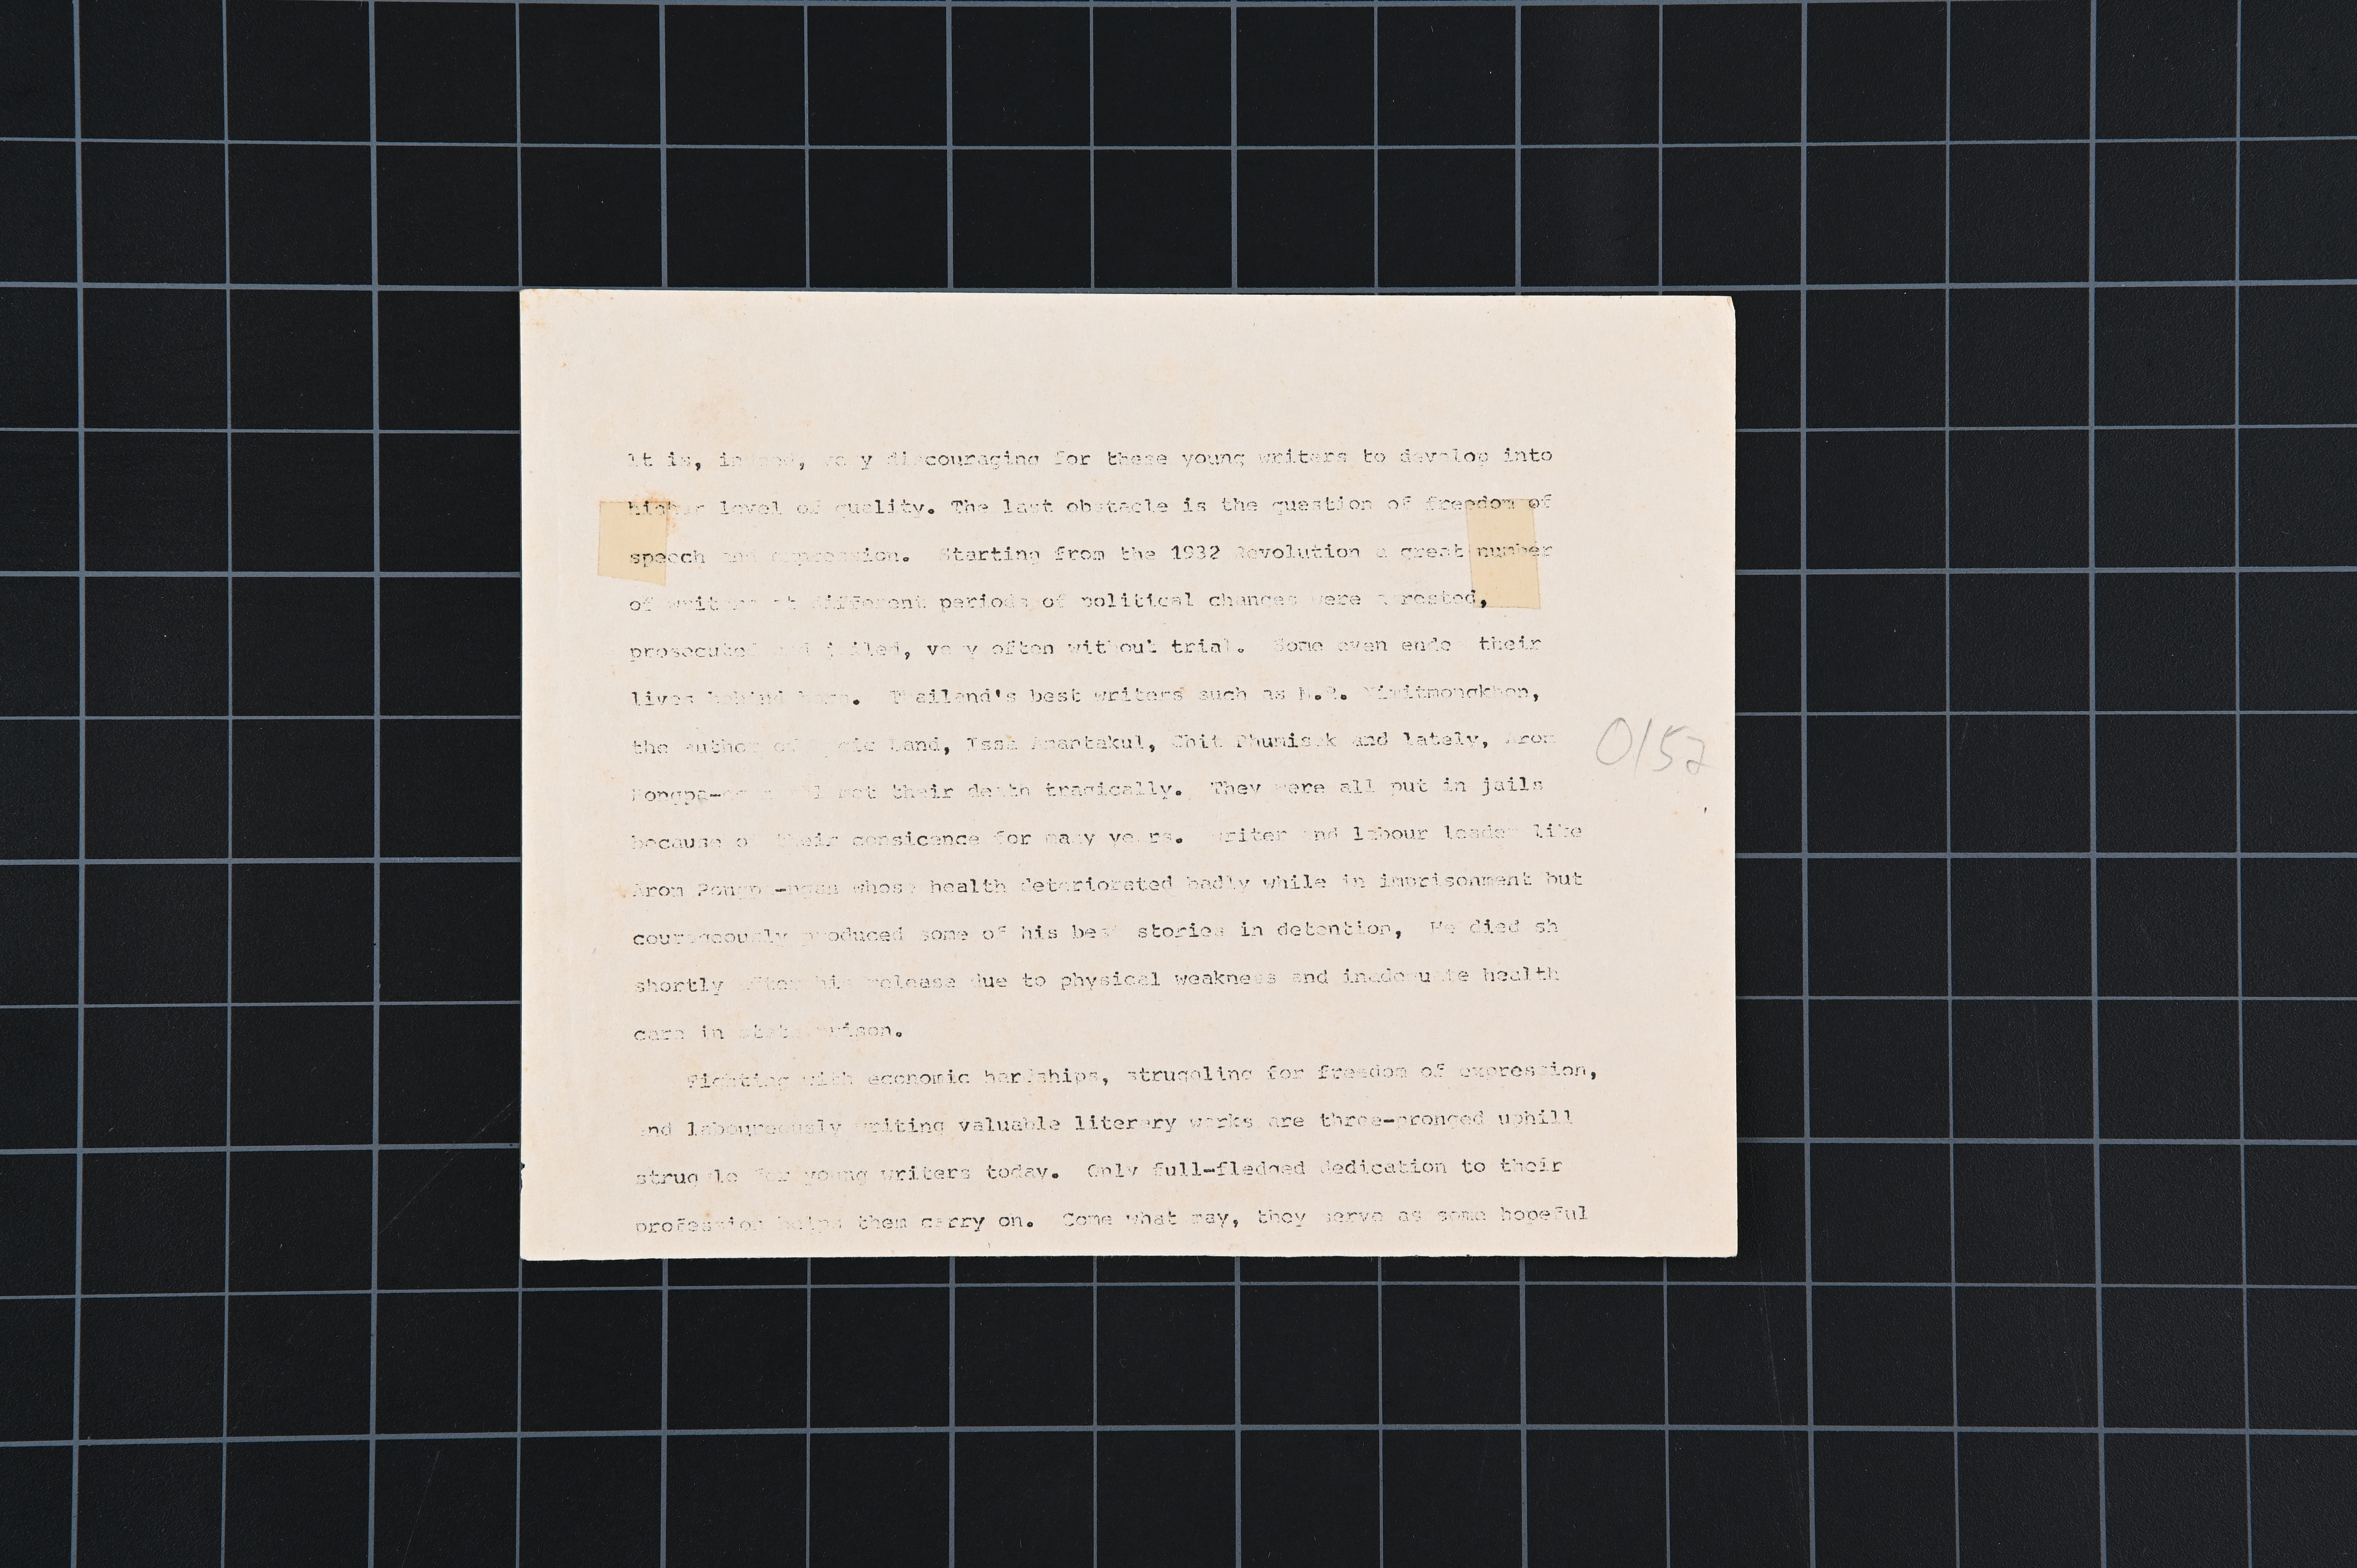 It is, indeed, very discouraging for these young writers to develop into
higher level of quality. The last obstacle is the question of freedom of
speech and expression. Starting from the 1932 Revolution a great number
of writers at different periods of political changes were arrested,
prosecuted and jailed, very often without trial. Some even ended their
lives behind bars. Thailand's best writers such as M.R. Nimitmongkhon,
the author of Land, Issa Amantakul, Chit Phumisak and lately, Arom
Pongpa-ngan all met their death tragically. They were all put in jails
because of their consicence for many years. Writer and labour leader like
Arom Pongpa-ngan whose health deteriorated badly while in imprisonment but
courageously produced some of his best stories in detention, He died sh
shortly after his release due to physical weakness and inadequate health
care in state prison.
Fighting with economic hardships, struggling for freedom of expression,
and laboureously writing valuable literary works are three-pronged uphill
struggle for young writers today. Only full-fledged dedication to their
profession helps them carry on. Come what may, they serve as some hopeful
0152